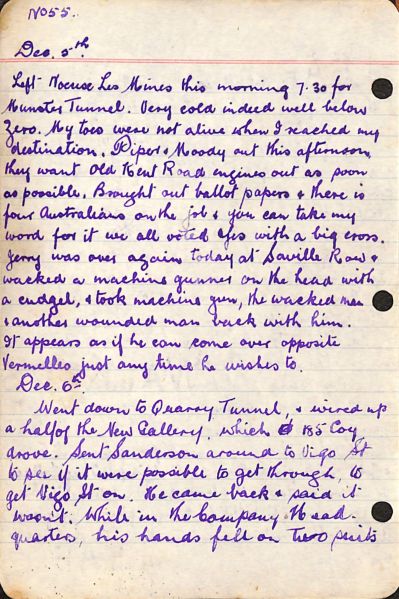 No 55.
Dec. 5th.
Left Noeux Les Mines this morning 7.30 for
Munster Tunnel. Very cold indeed well below
Zero. My toes were not alive when I reached my
destination. Piper & Moody out this afternoon,
they want Old Kent Road engines out as soon
as possible. Brought out ballot papers & there is
four Australians on the job & you can take my
word for it we all voted Yes with a big cross.
Jerry was over again today at Saville Row &
wacked a machine gunner on the head with
a cudgel, & took machine gun, the wacked man
& another wounded man back with him.
It appears as if he can come over opposite
Vermelles just any time he wishes to.
Dec. 6th
Went down to Quarry Tunnel, & wired up
a half of the New Gallery, which 185 Coy
drove. Sent Sanderson around to Vigo St
to see if it were possible to get through, to
get Vigo St on. He came back & said it
wasn't. While in the Company Head-
quarters, his hands fell on two suits